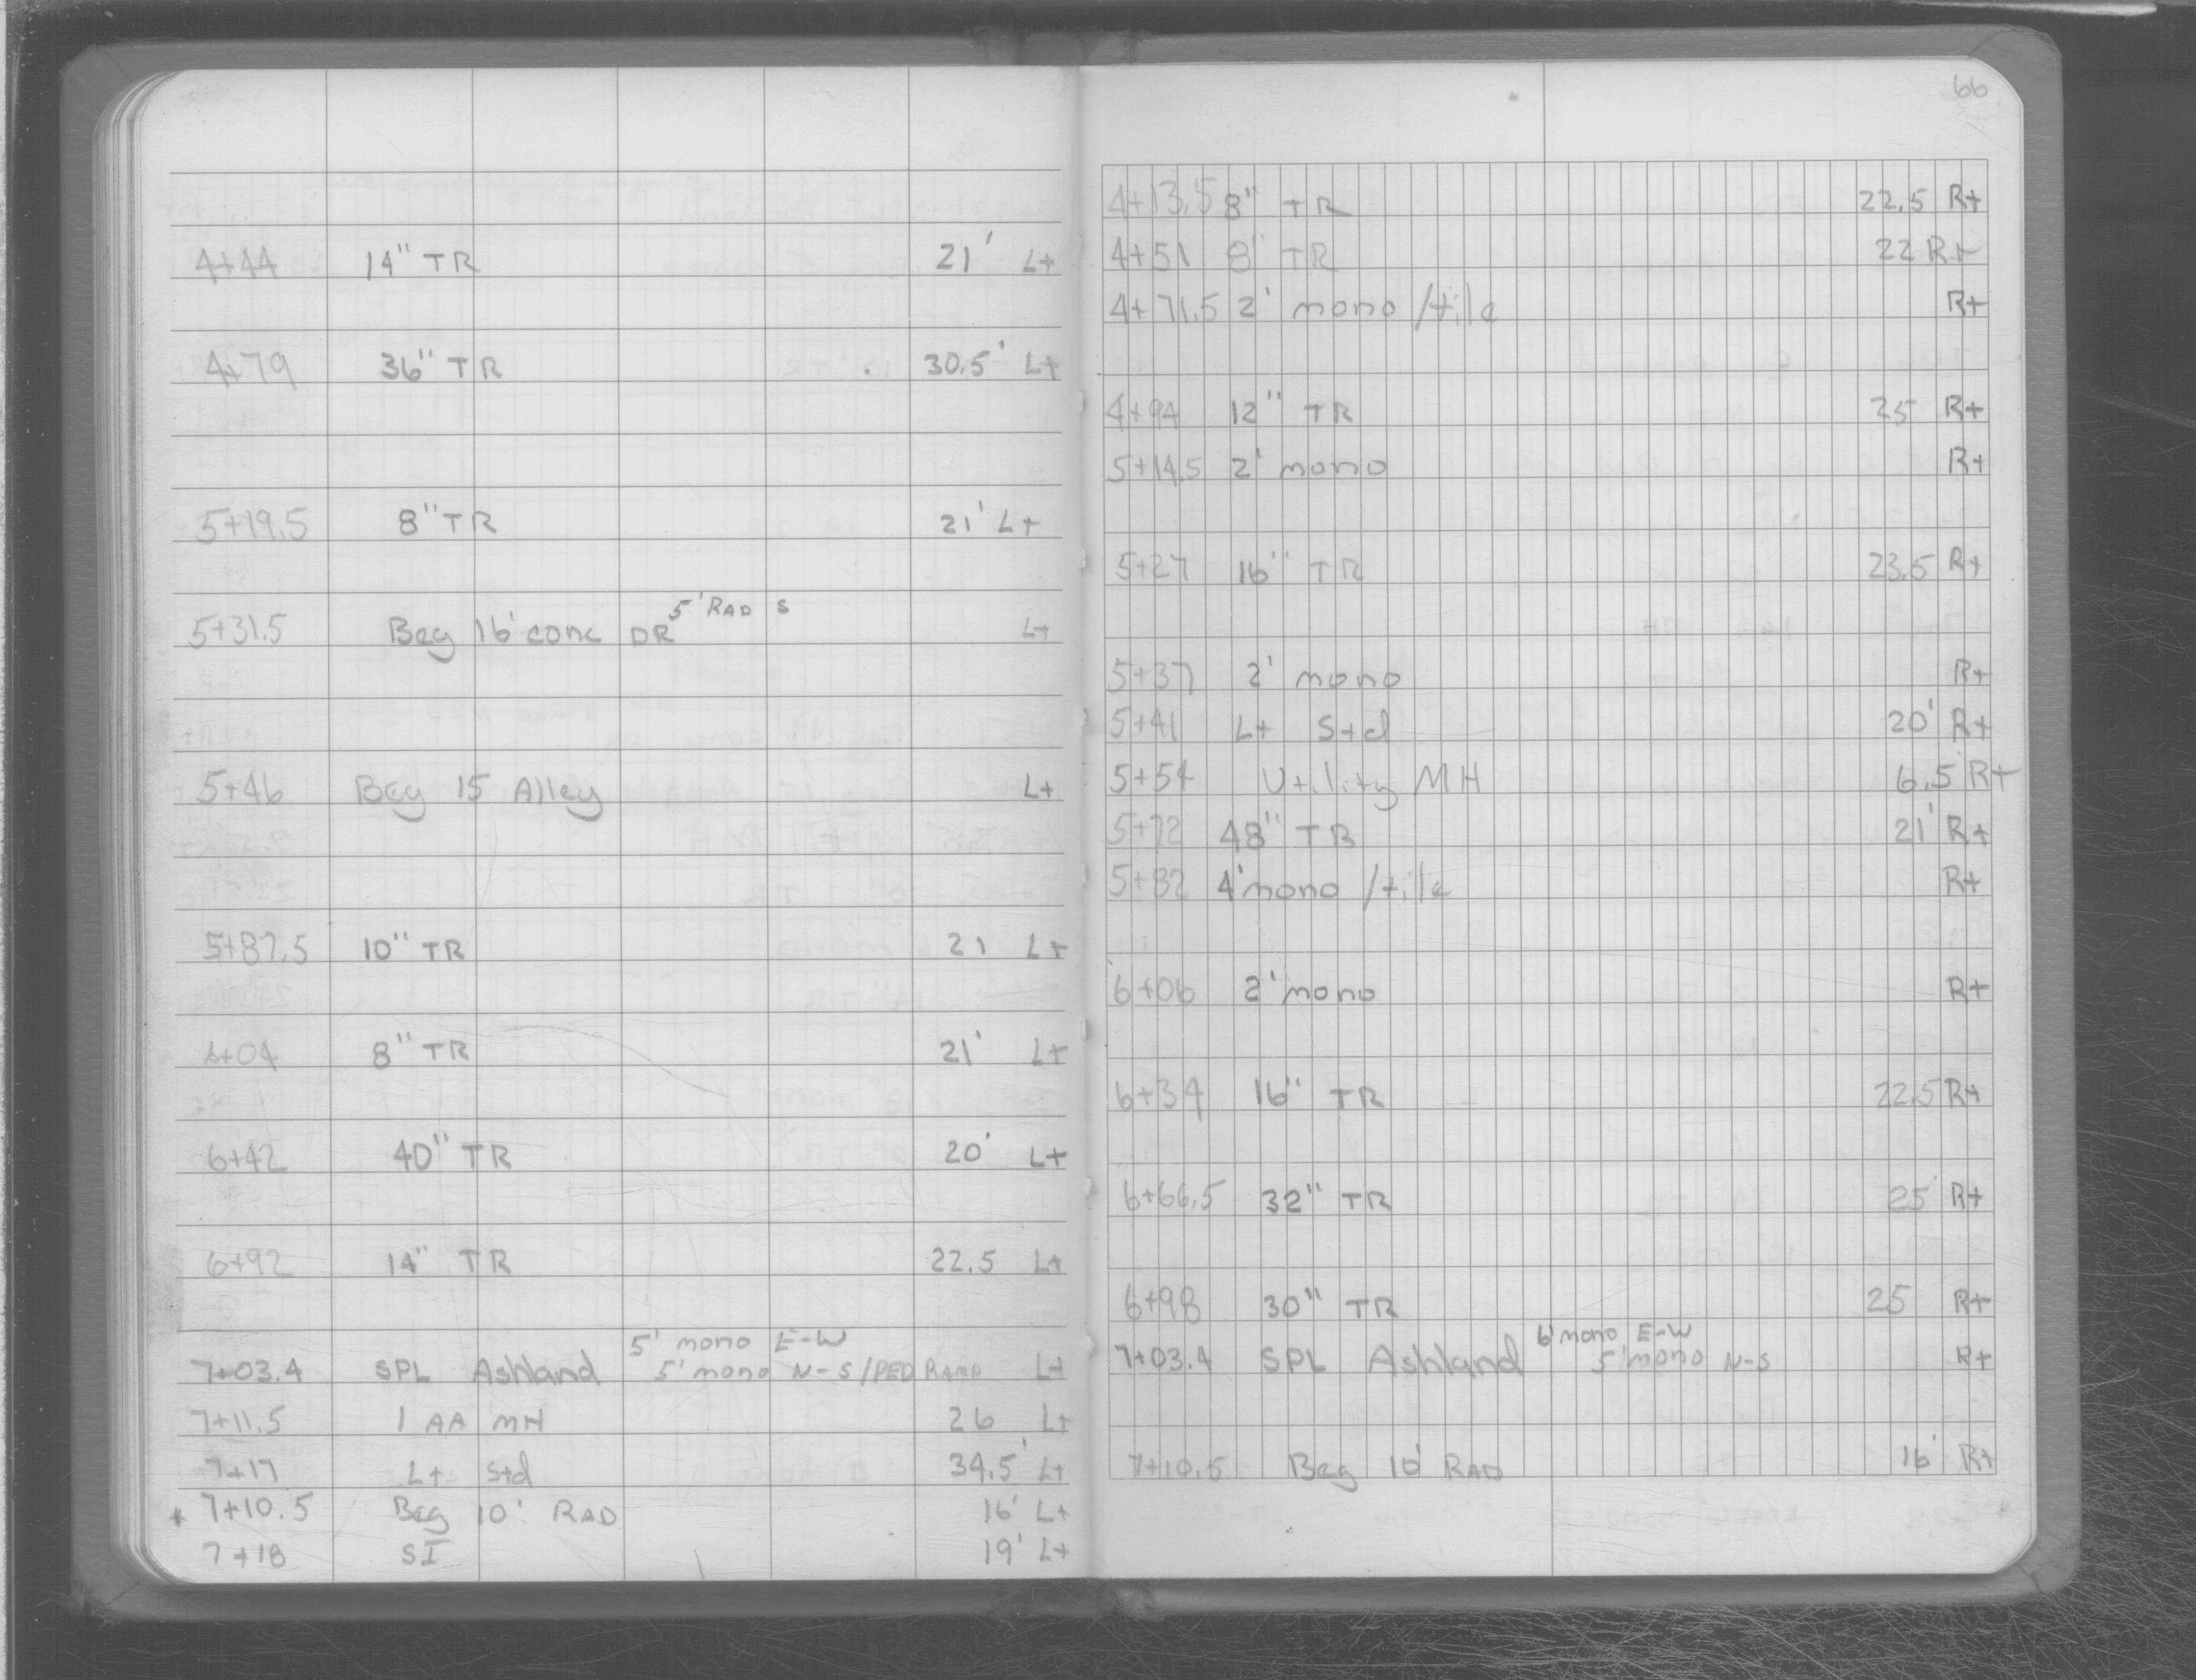 4+44 14" TR 21' Lt
4+79 36" TR 30.5' Lt
5+19.5 8" TR 21' Lt
5' RAD S
5+31.5 Beg 16' conc DR Lt
5+46 Beg 15 Alley Lt
5+87.5 10" TR 21 Lt
6+04 8" TR 21' Lt
6+42 40" TR 20' Lt
6+92 14" TR 22.5 Lt
5' mono E-W
7+03.4 SPL Ashland 5' mono N-S/PED RAMP Lt
7+11.5 1 AA MH 26 Lt
7+17 Lt Std 34.5' Lt
* 7+10.5 Beg 10' RAD 16' Lt
7+18 SI 19' Lt
66
4+13.5 8" TR 22.5 Rt
4+51 8" TR 22 Rt
4+71.5 2' mono /tile Rt
4+94 12" TR 25 Rt
5+14.5 2' mono Rt
5+27 16" TR 23.5 Rt
5+37 2' mono Rt
5+41 Lt Std 20' Rt
5+54 Utility MH 6.5 Rt
5+72 48" TR 21' Rt
5+82 4' mono /tile Rt
6+06 2' mono Rt
6+34 16" TR 22.5 Rt
6+66.5 32" TR 25' Rt
6+98 30" TR 25 Rt
6' mono E-W
7+03.4 SPL Ashland 5' mono N-S Rt
7+10.5 Beg 10' RAD 16' Rt